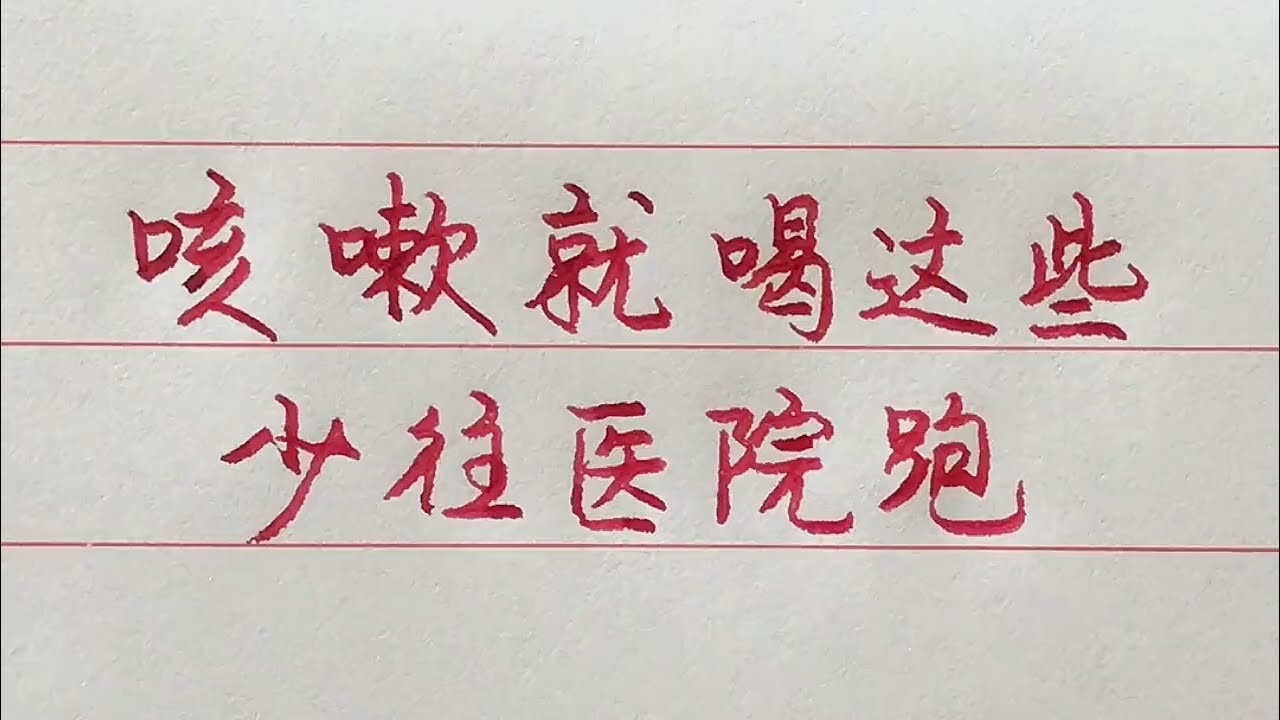 咳嗽就喝这些
少往医院跑